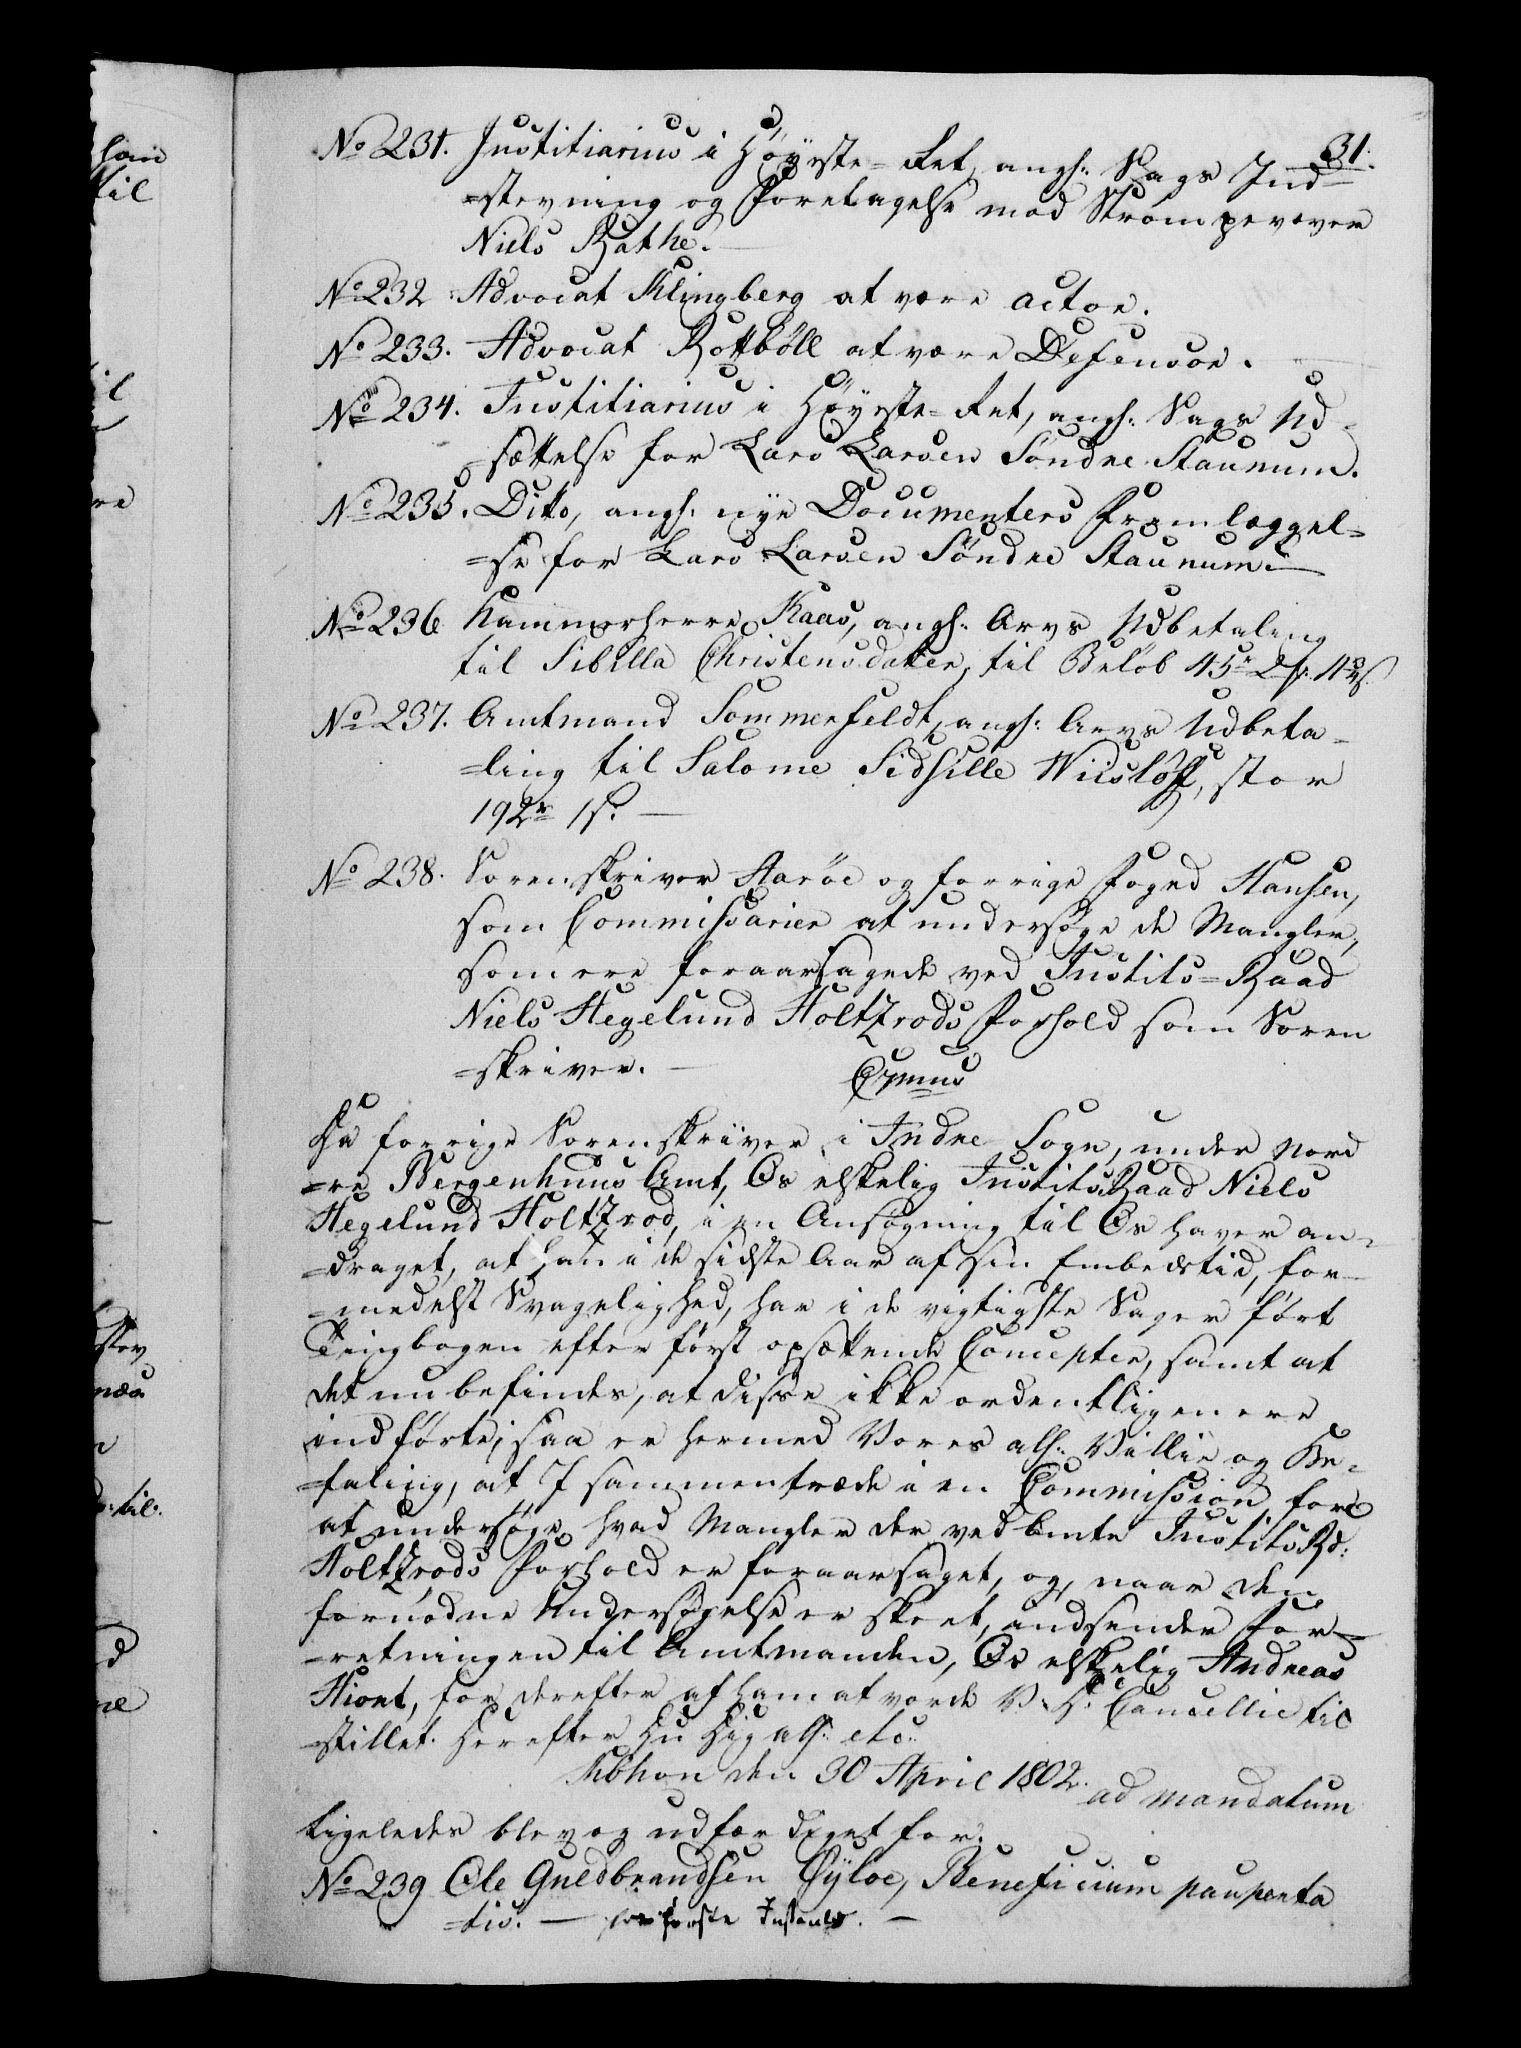 31.
No 231. Justitiarius i Høyeste-Ret, angh: Sags Ind-
=stevning og Foretagelse mod Strømpevæver
Niels Bathe.
No 232 Advocat Klingberg at være actor.
No 233. Advocat Rottbøll at være Defensor.
No 234. Justitiarius i Høyeste-Ret, angh: Sags Ud-
sættelse for Lars Larsen Søndre Staunum.
No 235. Ditto, angh: nye Documenters Fremlæggel=
=se for Lars Larsen Søndre Staunum.
No 236 Kammerherre Kaas, angh: Arvs Udbetaling
til Sibilla Christensdatter, til Beløb 45r 2
No 237. Amtmand Sommerfeldt, angh: Arvs Udbeta-
=ling til Salome Sidsille Wiisløff, stor
192r 1s.
No 238. Sorenskriver Aarøe og forrige Foged Hansen,
som Commissarier at undersøge de Mangler,
som ere foraarsagede ved Justits=Raad
Niels Hegelund Holtzrods Forhold som Soren
=skriver.
Da forrige Sorenskriver i Indre Sogn, under Nord
=re Bergenhuus Amt, Os elskelig JustitsRaad Niels
Hegelund Holtzrod, i en Ansøgning til Os haver an=
=draget, at han i de sidste Aar af sin Embedstid, for-
=medelst Svagelighed, har i de vigtigste Sager ført
Tingbogen efter først opsættende Concepter, samt at
det nu befindes, at disse ikke ordentligen ere
indførte; saa er hermed Vores alh: Villie og Be=
=faling, at I sammentræde i en Commission for
at undersøge, hvad Mangler der ved bmte JustitsRd:
Holtzrods Forhold er foraarsaget, og, naar den
fornødne Undersøgelse er skeet, indsender For-
=retningen til Amtmanden, Os elskelig Andreas
Hiort, for derefter af ham at vorde V. D. Cancellie til
=stillet. Herefter etc:
Kbhvn den 30 April 1802.
ad mandatum
Ligeledes blev og udfærdiget for:
No 239 Ole Guldbrandsen Øyloe, Beneficium pauperta
=tis. — for første Instants. —